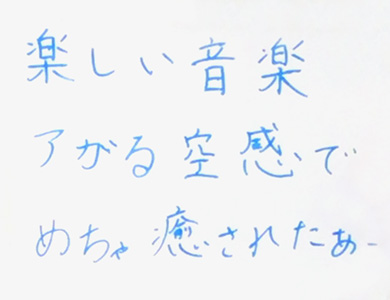 楽しい音楽
アがる空感で
めちゃ癒されたぁー